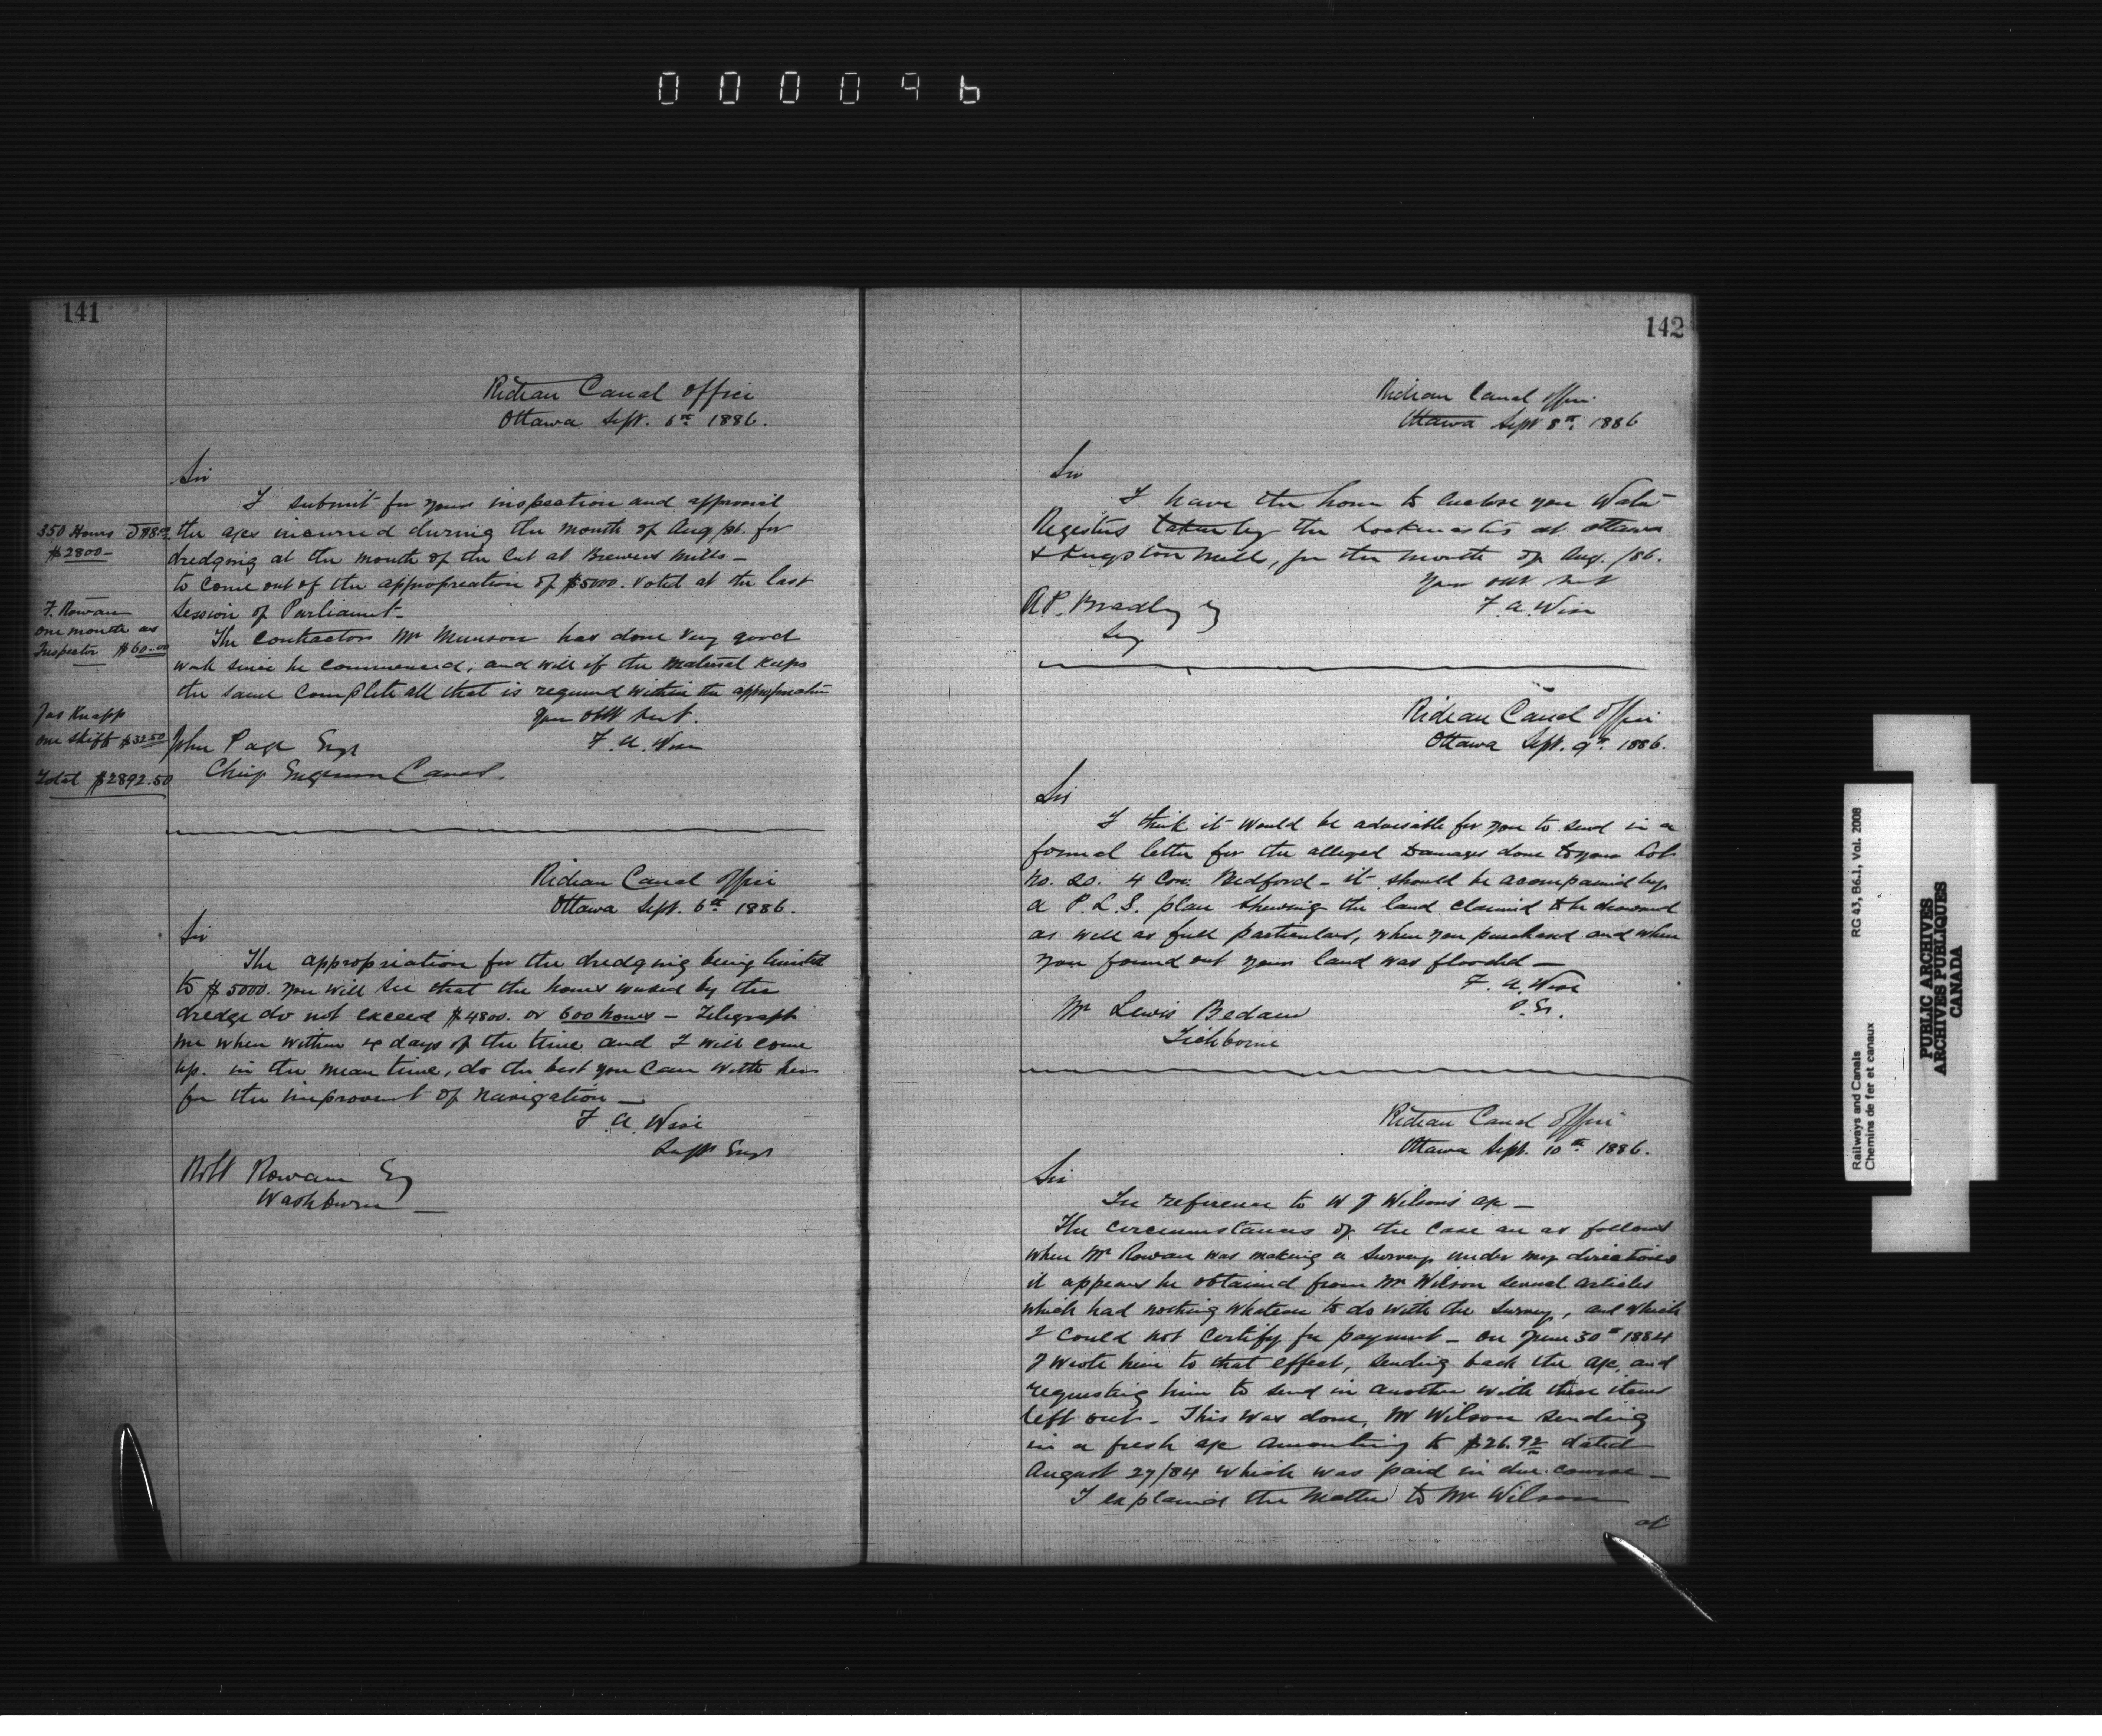 000096
141
Rideau Canal Office
Ottawa Sept. 6th 1886.
Sir
I submit for your inspection and approval
the a/cs incurred during the month of Aug pst. for
dredging at the mouth of the Cut at Brewers Mills —
to come out of the appropreation of $5000. voted at the last
Session of Parliament —
The contractors Mr Munson has done very good
work since he commenced, and will if the material keeps
the same complete all that is required within the appropriation
Your obt Servt.
F. A. Wise
John Page Esqr
Chief Engineer Canals.
350 Hours @ $8.00
$2800 —
F. Rowan
one month as
Inspector $60.00
Jas Knapp
one skiff $32.50
Total $2892.50
Rideau Canal Office
Ottawa Sept. 6th 1886.
Sir
The appropriation for the dredging being limited
to $5000. you will see that the hours worked by the
dredge do not exceed $4800. or 600 hours — Telegraph
me when within 4 days of the time and I will come
up. in the mean time, do the best you can with her
for the improvemt of navigation —
F. A. Wise
Supt Engr
Robt Rowan Esq
Washburn —
142
Rideau Canal Office.
Ottawa Sept 8th. 1886
Sir
I have the honor to enclose you Water
Registers taken by the Lockmasters at Ottawa
& Kingston Mills, for the month of Aug. /86.
Your obt Servt
F. A. Wise
A. P. Bradley Esq
Secy
Rideau Canal Office
Ottawa Sept. 9th. 1886.
Sir
I think it would be advisable for you to send in a
formal letter for the alleged Damages done to your Lot
No. 20. 4 Con: Bedford — it should be acompanied by
a P. L. S. plan shewing the land claimed to be drowned
as well as full particulars, when you purchased and when
you found out your land was flooded —
F. A. Wise
S. Er.
Mr Lewis Bedaw
Tichborne
Rideau Canal Office
Ottawa Sept. 10th 1886.
Sir
In reference to W J Wilson's a/c —
The circumstances of the case are as follows
when Mr Rowan was making a Survey under my directions
it appears he obtained from Mr Wilson several articles
which had nothing whatever to do with the Survey, and which
I could not certify for payment — on June 30th 1884
I wrote him to that effect, sending back the a/c, and
requesting him to send in another with these items
left out — This was done, Mr Wilson sending
in a fresh a/c amounting to $26.92 dated
August 27/84 which was paid in due course —
I explained the matter to Mr Wilson
at
Railways and Canals
Chemins de fer et canaux
RG 43, B6.1, Vol. 2008
PUBLIC ARCHIVES
ARCHIVES PUBLIQUES
CANADA